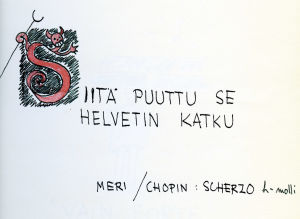 SIITÄ PUUTTU SE
HELVETIN KATKU
MERI / CHOPIN : SCHERZO h-molli